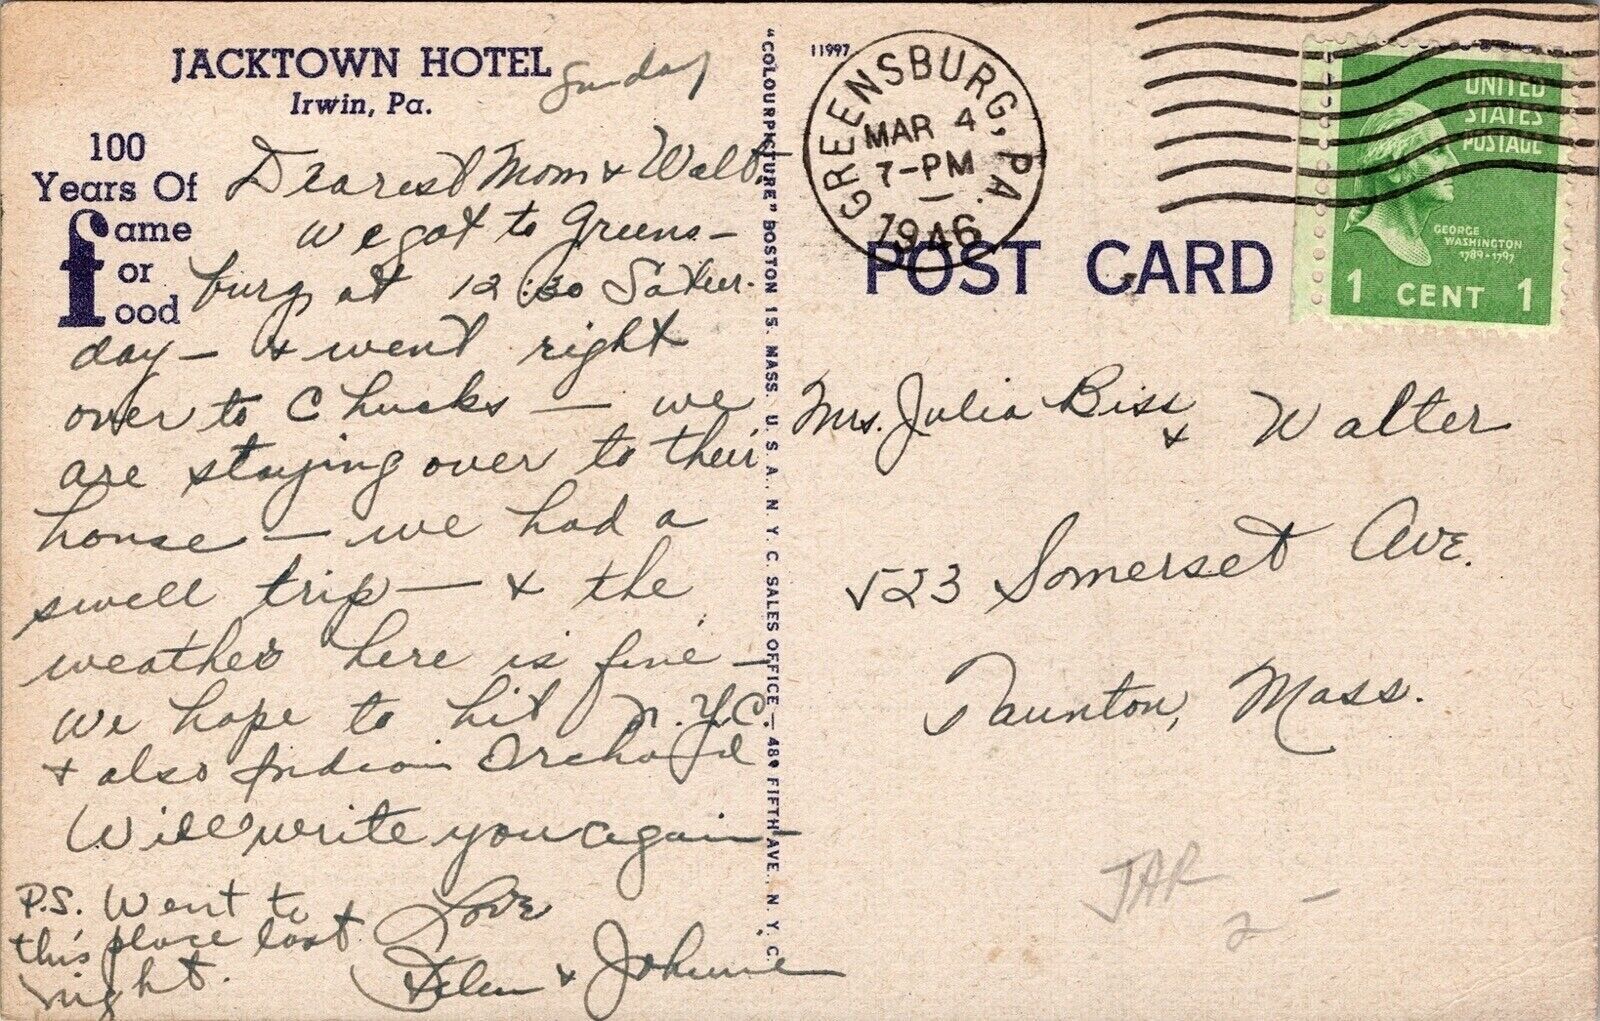 JACKTOWN HOTEL
Irwin, Pa.
100
Years Of
fame
for
food
Sunday
Dearest Mom & Walt.
We got to Greens-
burg, at 12:30 Satur-
day — & went right
over to Chucks — we
are staying over to their
house — we had a
swell trip — & the
weather here is fine —
We hope to hit N.Y.C.
& also Indian Orchard
Will write you again —
Love
Helen & Johnnie
P.S. Went to
this place last
night.
"COLOURPICTURE" BOSTON 15. MASS. U. S. A., N. Y. C. SALES OFFICE — 489 FIFTH AVE., N. Y. C.
11997
GREENSBURG, PA.
MAR 4
7-PM
1946
UNITED
STATES
POSTAGE
GEORGE
WASHINGTON
1789-1797
1 CENT 1
POST CARD
Mrs. Julia Biss & Walter
523 Somerset Ave.
Taunton, Mass.
JAR
2 —